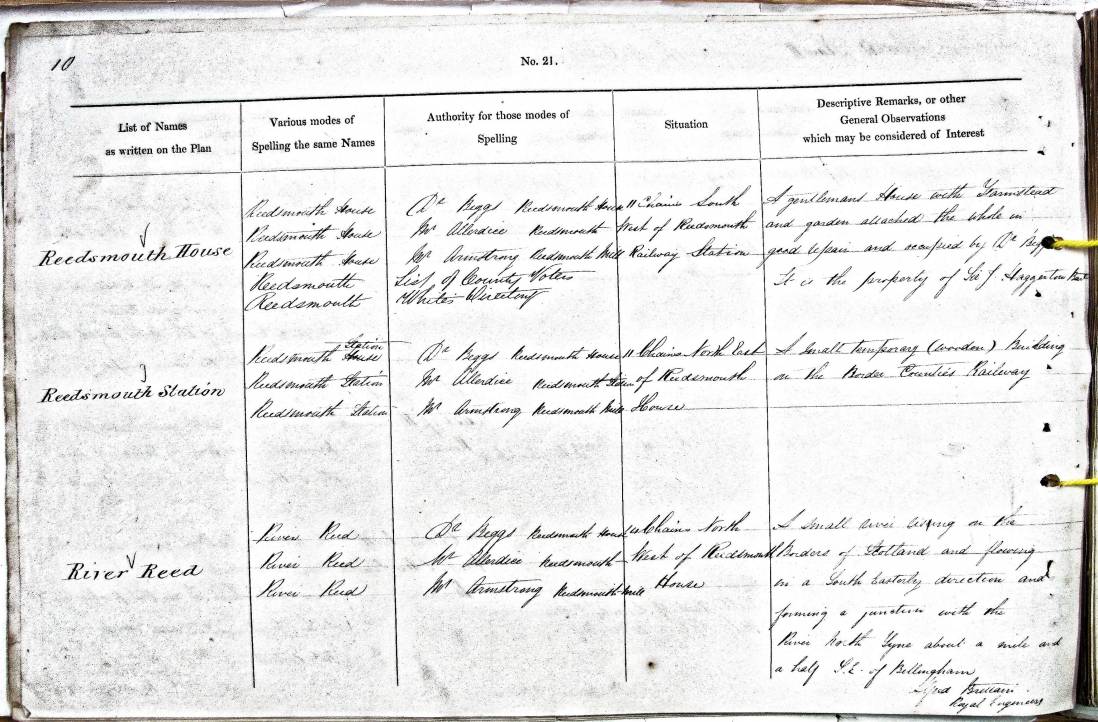 10
No. 21.
List of Names
as written on the Plan
Various modes of
Spelling the same Names
Authority for those modes of
Spelling
Situation
Descriptive Remarks, or other
General Observations
which may be considered of Interest
Reedsmouth House
Reedsmouth House
Reedsmouth House
Reedsmouth House
Reedsmouth
Reedsmouth
Dr Beggs Reedsmouth House
Mr Allerdice Reedsmouth
Mr Armstrong Reedsmouth Mill
List of County Voters
Whites Directory
11 Chains South
West of Reedsmouth
Railway Station
A gentlemans House with Farmstead
and garden attached the whole in
good repair and occupied by Dr Beggs
It is the property of Sir J. Haggerston Bart
Reedsmouth Station
Reedsmouth Station House
Reedsmouth Station
Reedsmouth Station
Dr Beggs Reedsmouth House
Mr Allerdice Reedsmouth Station
Mr Armstrong Reedsmouth Mill
11 Chains North East
of Reedsmouth
House
A small temporary (wooden) Building
on the Border Counties Railway
River Reed
River Reed
River Reed
River Reed
Dr Beggs Reedsmouth House
Mr Allerdice Reedsmouth
Mr Armstrong Reedsmouth Mill
Chains North
West of Reedsmouth
House
A small river rising on the
Borders of Scotland and flowing
in a South Easterly direction and
forming a junction with the
River North Tyne about a mile and
a half S.E. of Bellingham
Brittain
Royal Engineers